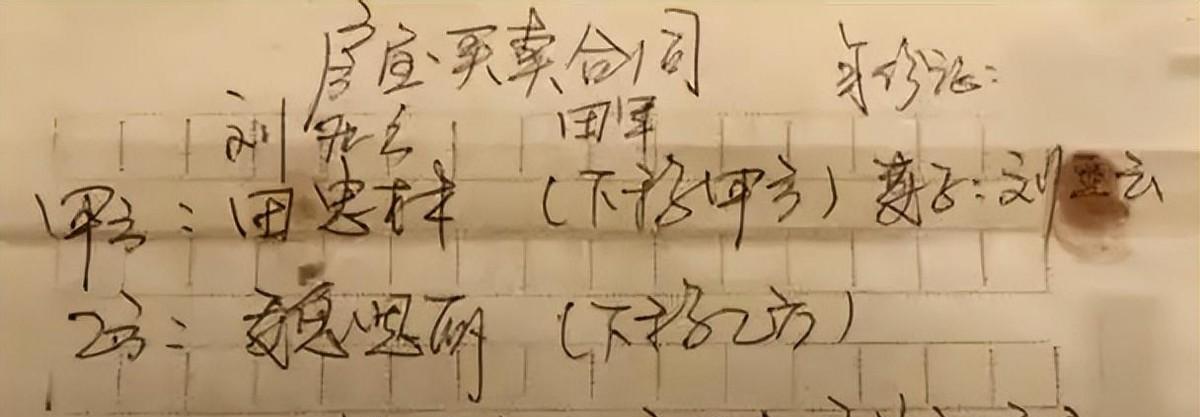 房宜买卖合同 身份证:
刘 云 田军
甲方:田忠林 (下称甲方) 妻子:刘云
乙方:魏思丽 (下称乙方)